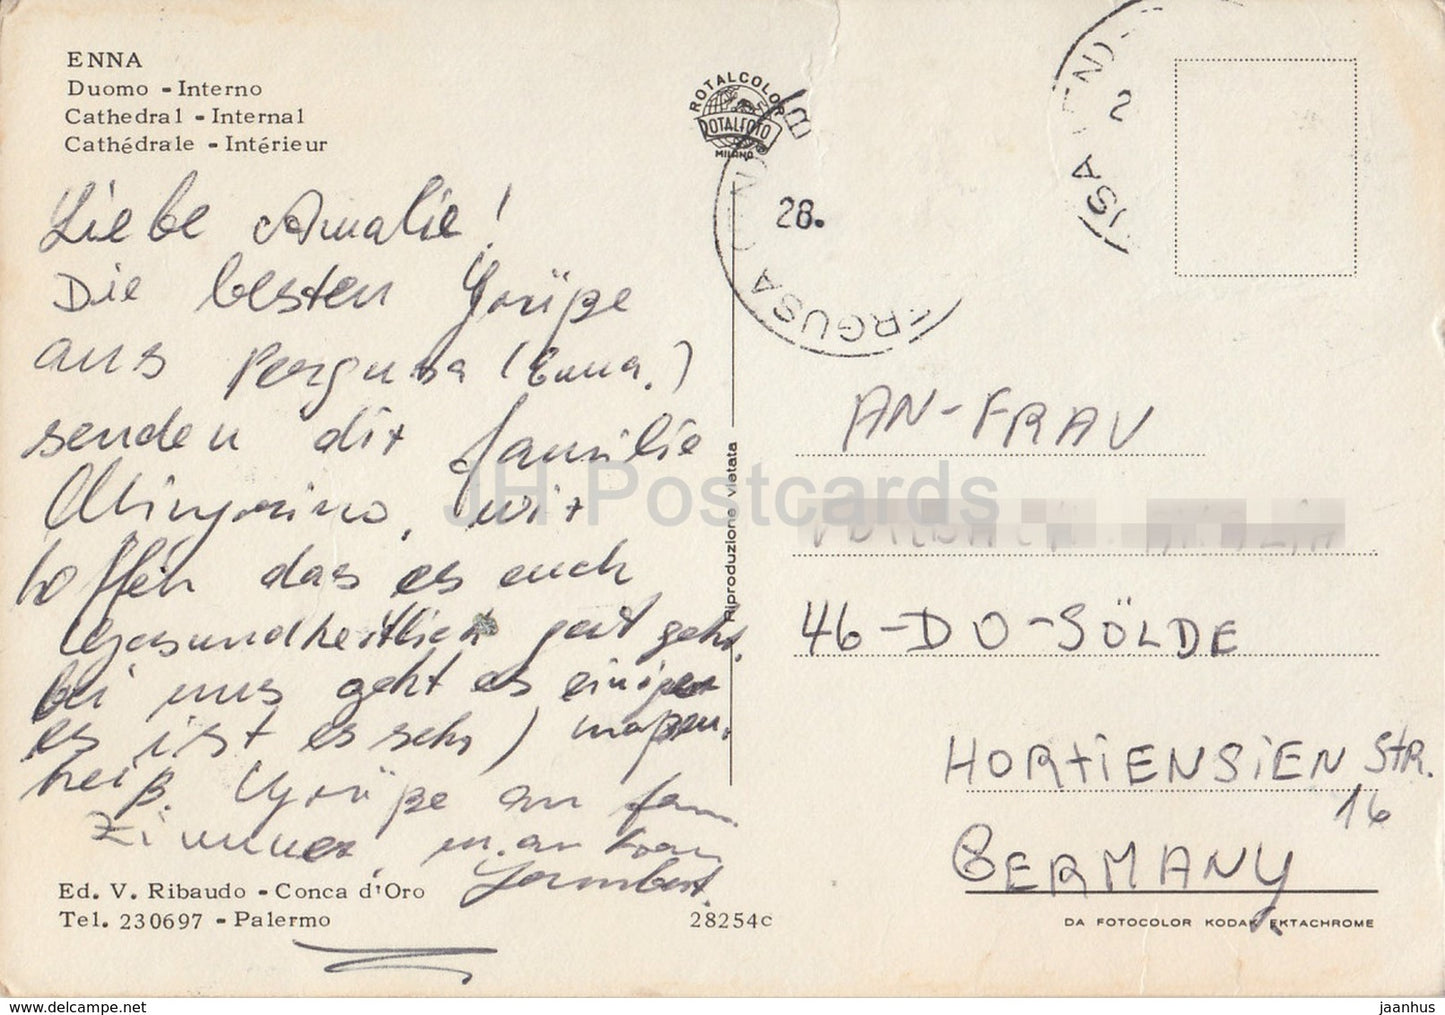 ENNA
Duomo - Interno
Cathedral - Internal
Cathédrale - Intérieur
ROTALCOLOR
ROTALFOTO
MILANO
28.
ERGUSA
2
Liebe Amalie!
Die besten Grüße
aus Pergusa (Enna.)
senden dir familie
Mingrino, wir
hoffen das es euch
Gesundheitlich gut geht.
bei uns geht es einiger
es ist es sehr) maßen.
heiß. Grüße an fam.
Zimmer, u. an
Riproduzione vietata
AN-FRAU
46-DO-SÖLDE
HORTiENSiEN STR.
16
GERMANY
JH Postcards
Ed. V. Ribaudo - Conca d'Oro
Tel. 230697 - Palermo
28254c
DA FOTOCOLOR KODAK EKTACHROME
www.delcampe.net
jaanhus